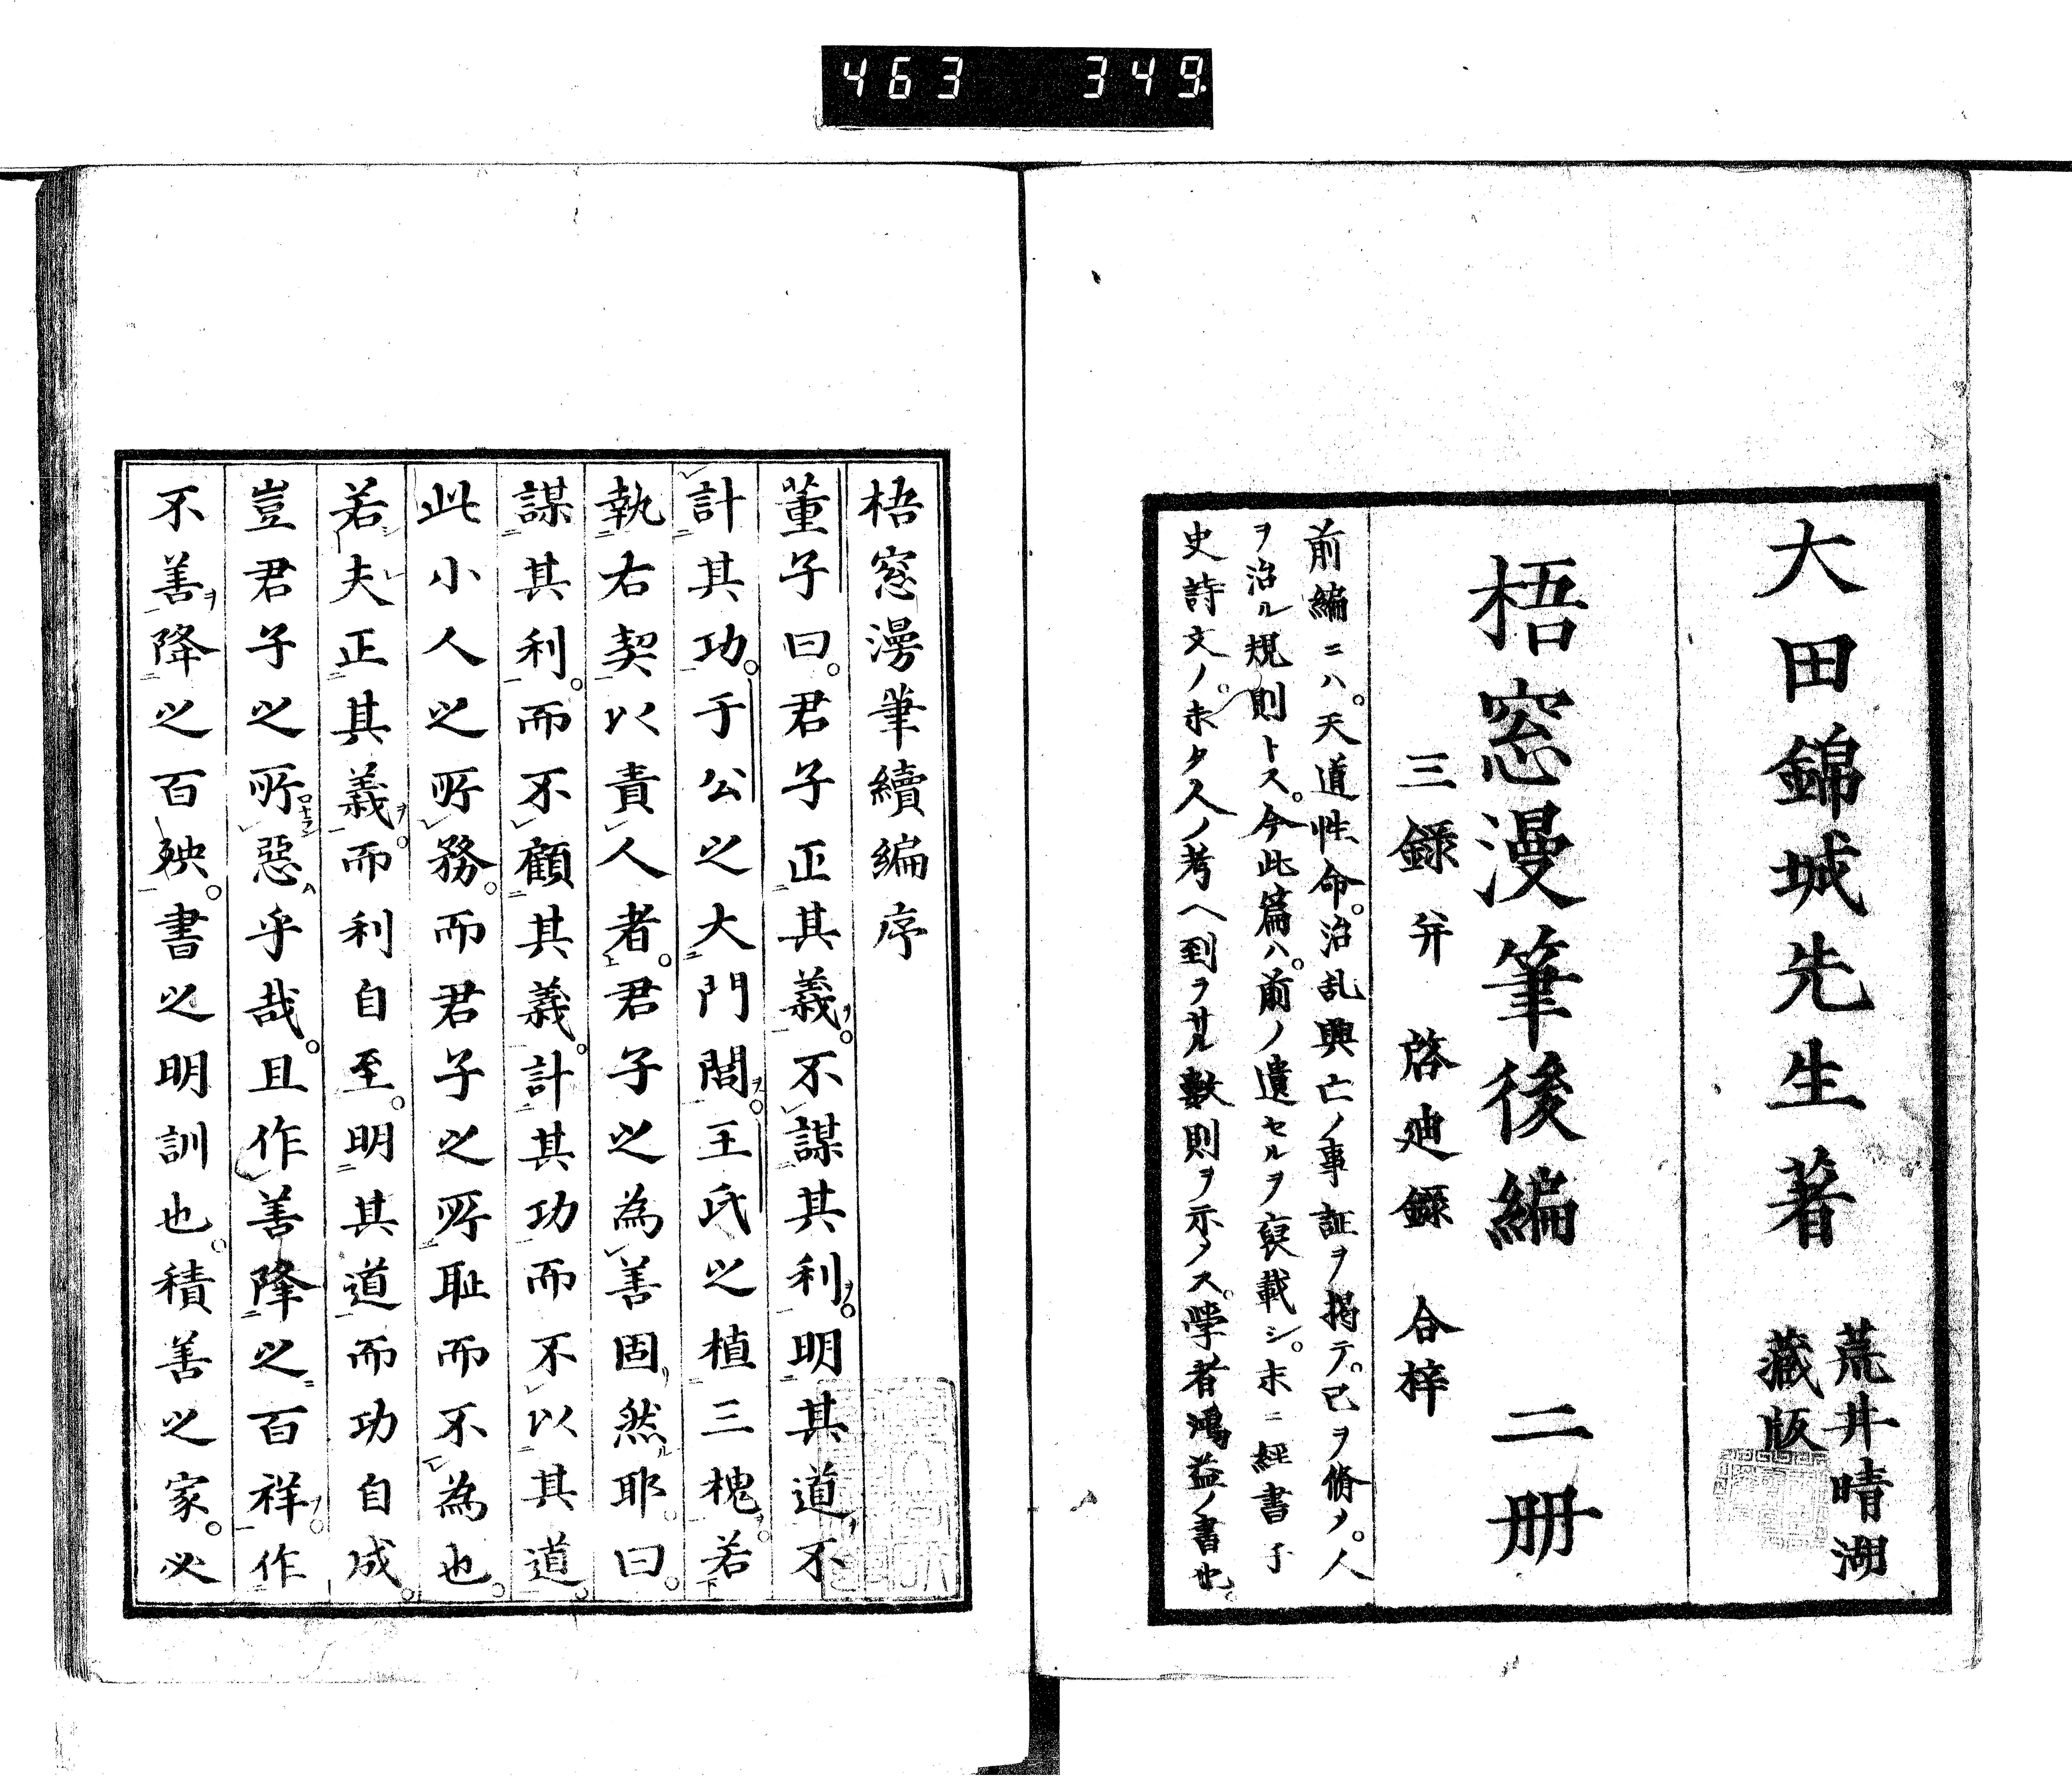 463 349
大田錦城先生著
荒井晴湖
藏版
梧窓漫筆後編 二册
三錄并 啓迪錄 合梓
前編ニハ。天道性命。治乱興亡ノ事証ヲ掲テ。己ヲ脩メ。人
ヲ治ル規則トス。今此篇ハ。前ノ遺セルヲ裒載シ。末ニ經書子
史詩文ノ。未タ人ノ考ヘ到ラサル數則ヲ示ス。学者鴻益ノ書也。
梧窓漫筆續編序
董子曰。君子正其義。不謀其利。明其道不
計其功。于公之大門閭。王氏之植三槐。若
執右契以責人者。君子之為善固然耶。曰。
謀其利。而不顧其義。計其功而不以其道。
此小人之所務。而君子之所耻而不為也。
若夫正其義。而利自至。明其道而功自成。
豈君子之所惡乎哉。且作善降之百祥。作
不善降之百殃。書之明訓也。積善之家。必